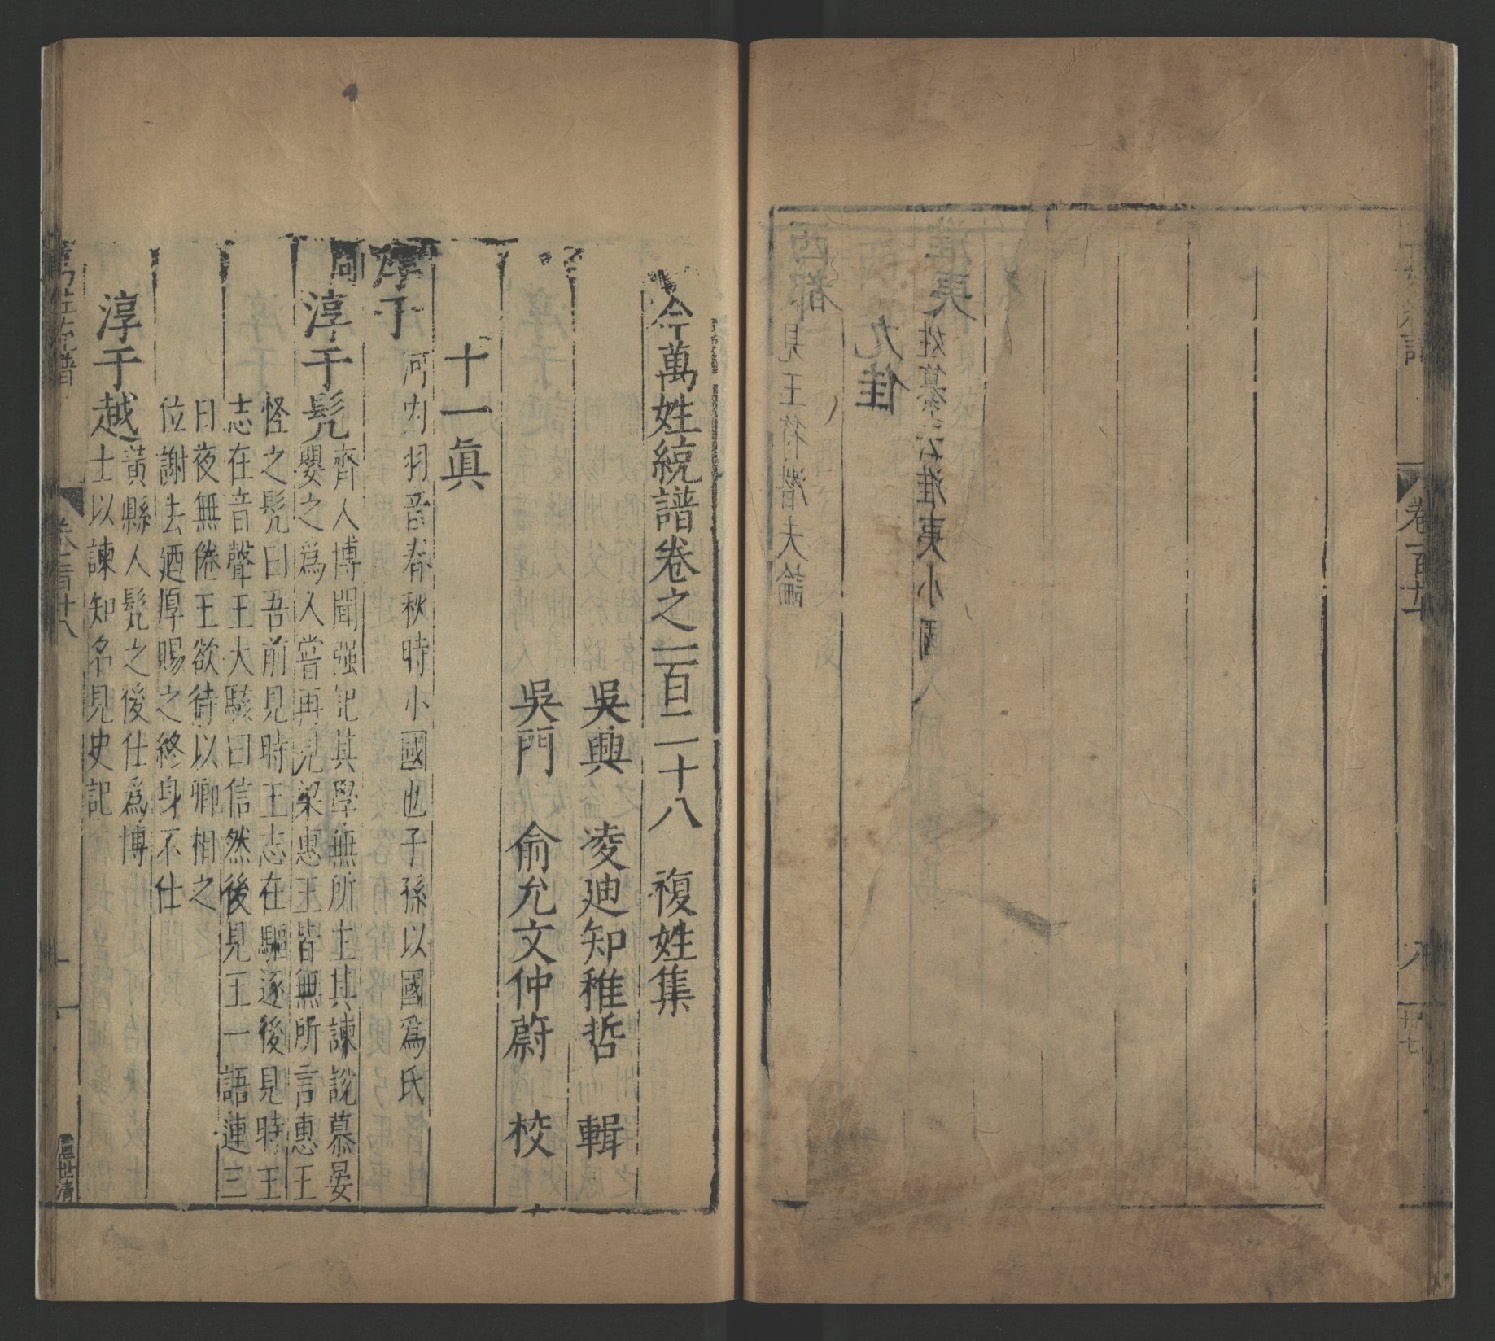 卷一百廿
八
今萬姓統譜卷之一百二十八　複姓集
吳興　凌廸知稚哲　輯
吳門　俞允文仲蔚　校
十一眞
淳于
河内羽音春秋時小國也子孫以國為氏
周
淳于髡
齊人博聞强記其學無所主其諫說慕晏
嬰之為人甞再見梁惠王皆無所言惠王
怪之髡曰吾前見時王志在驅逐後見時王
志在音聲王大駭曰信然後見王一語連三
日夜無倦王欲待以卿相之
位謝去廼厚賜之終身不仕
淳于越
黃縣人髡之後仕爲博
士以諫知名見史記
萬姓統譜
卷一百廿八
一